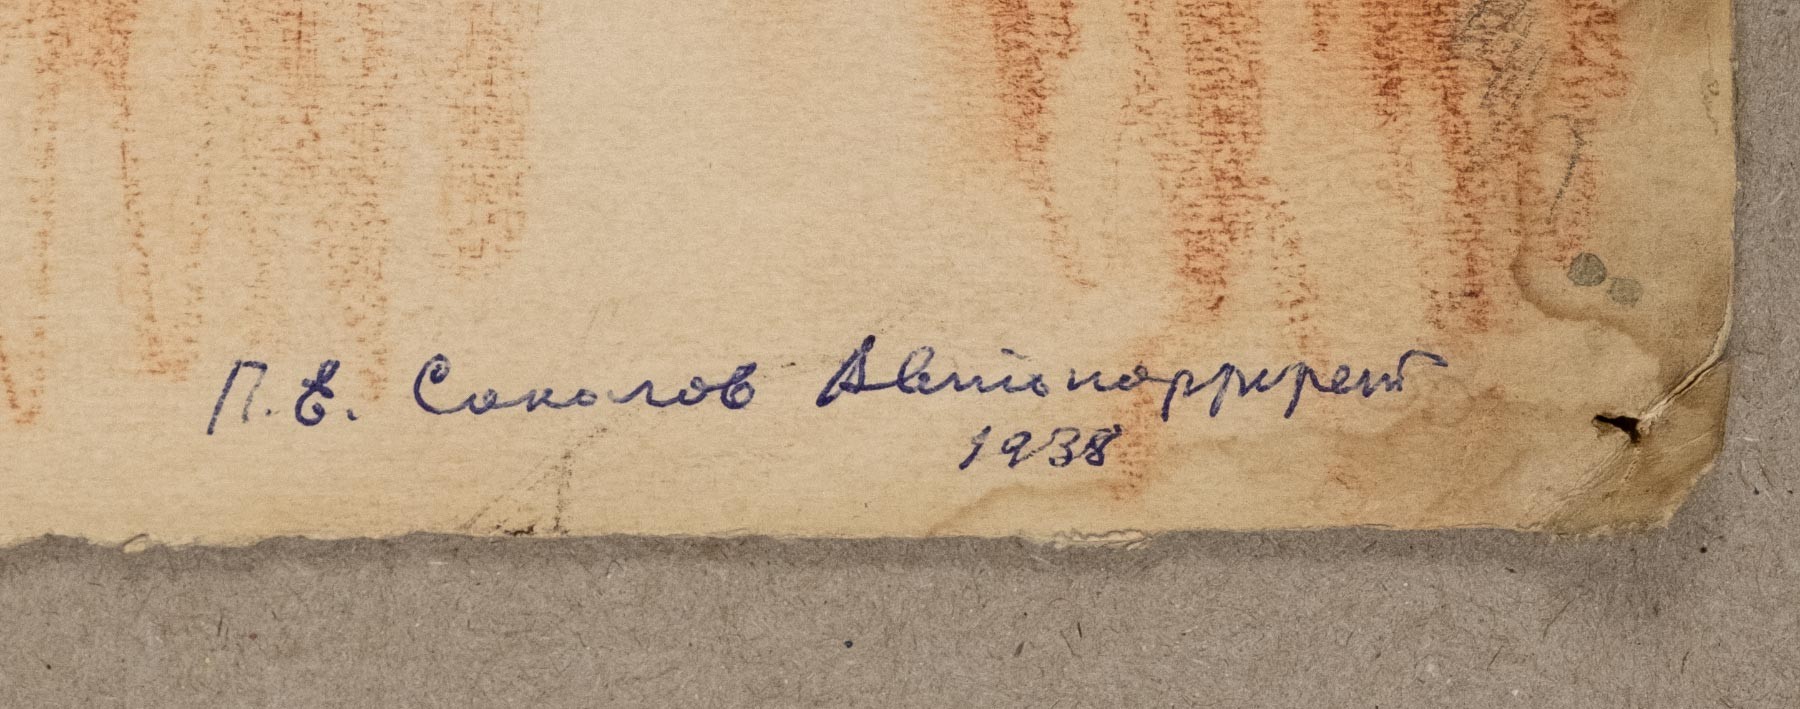 П. Е. Соколов Автопортрет
1938